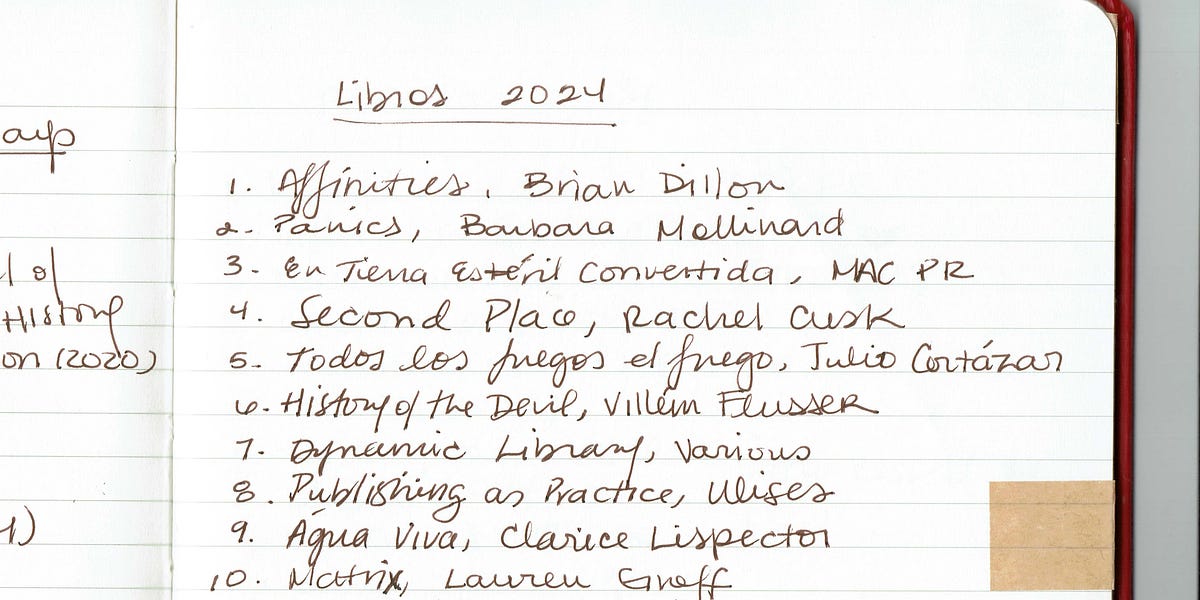 arp
l of
History
on (2020)
4)
Libros 2024
1. Affinities, Brian Dillon
2. Panics, Barbara Mollinard
3. En Tierra Estéril Convertida, MAC PR
4. Second Place, Rachel Cusk
5. Todos los fuegos el fuego, Julio Cortázar
6. History of the Devil, Villém Flusser
7. Dynamic Library, Various
8. Publishing as Practice, Ulises
9. Água Viva, Clarice Lispector
10. Matrix, Lauren Groff